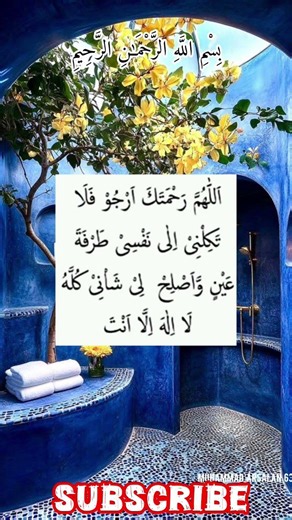 بِسْمِ اللَّهِ الرَّحْمَٰنِ الرَّحِيمِ
اَللّٰهُمَّ رَحْمَتَكَ اَرْجُوْ فَلَا
تَكِلْنِيْ اِلٰى نَفْسِيْ طَرْفَةَ
عَيْنٍ وَّاَصْلِحْ لِيْ شَاْنِيْ كُلَّهُ
لَا اِلٰهَ اِلَّا اَنْتَ
MUHAMMAD ARSALAN 63
SUBSCRIBE